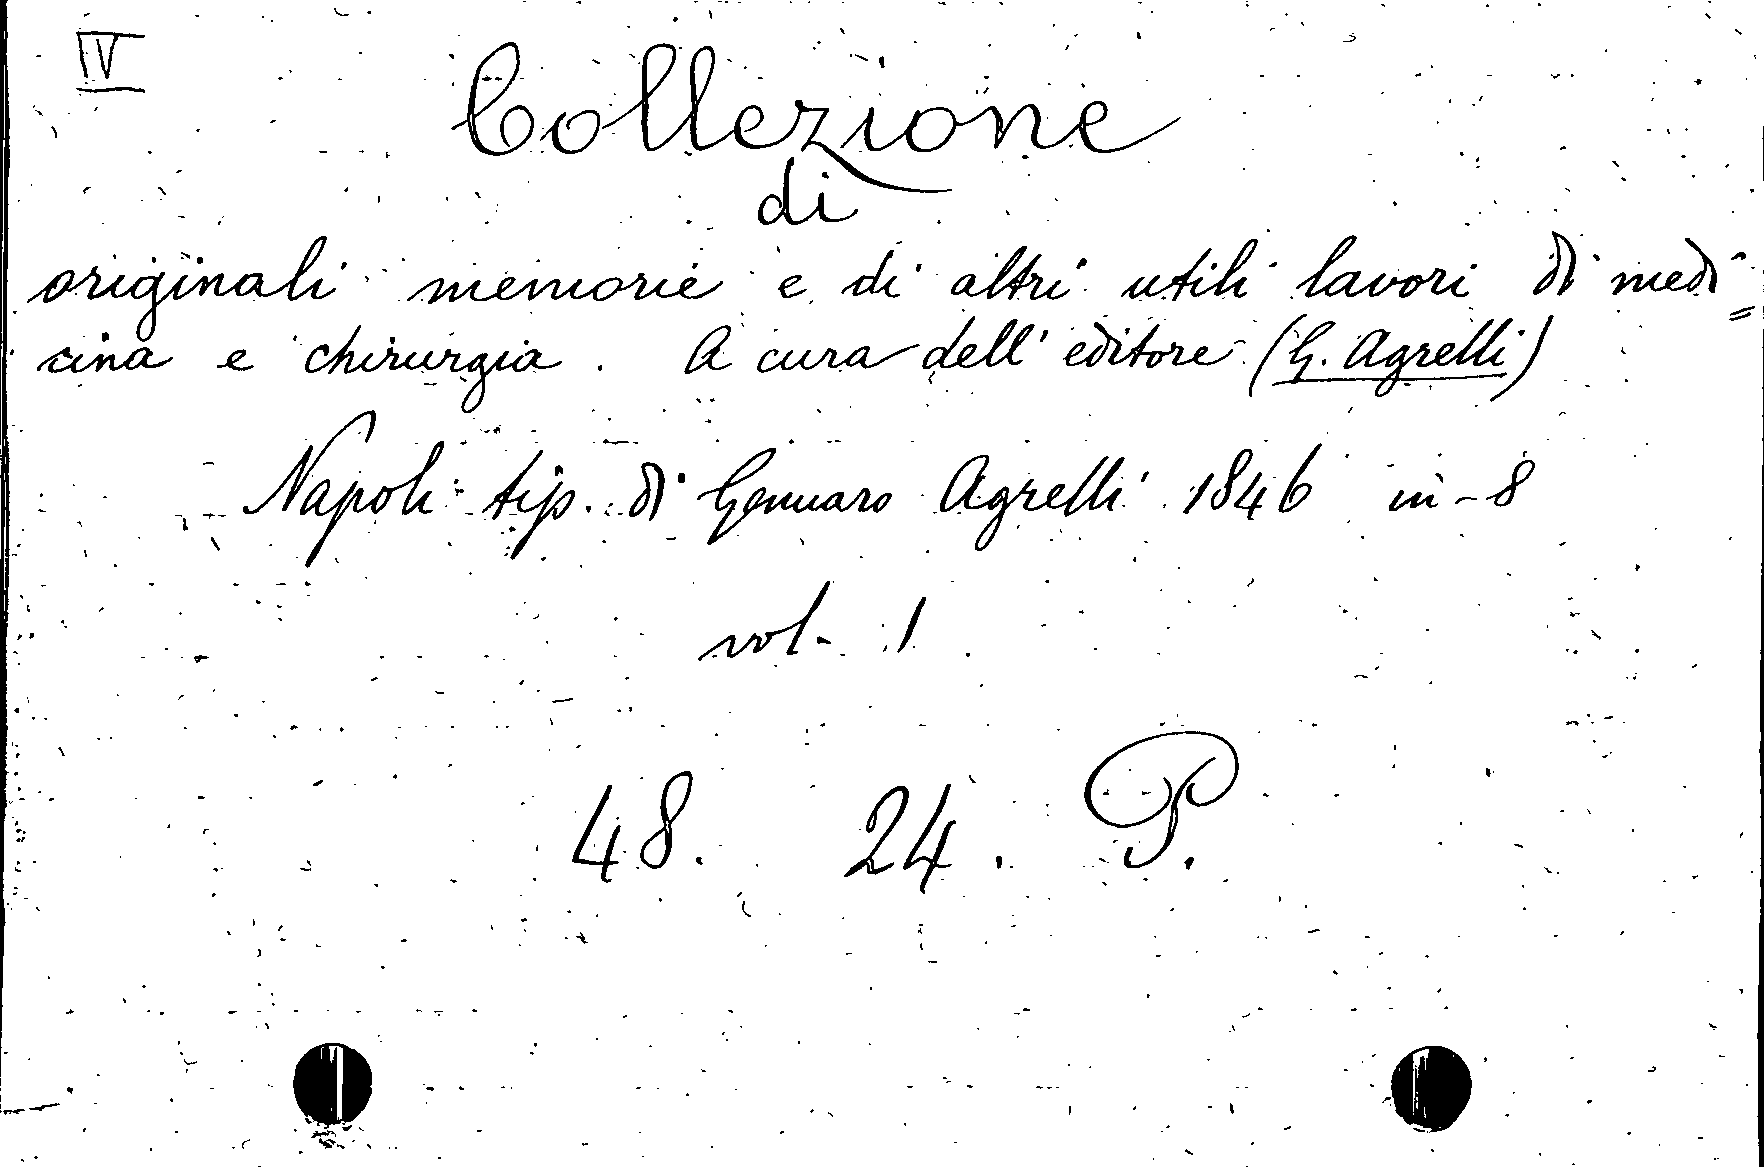 IV
Collezione
di
originali memorie e di altri utili lavori di medi=
cina e chirurgia. A cura dell' editore (G. Agrelli)
Napoli tip. di Gennaro Agrelli 1846 in-8
vol. 1
48. 24. P.